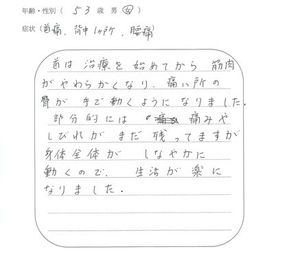 年齢・性別（ 53 歳 男 女 ）
症状（首痛、背中1ヶ所、腰痛）
首は 治療を 始めてから 筋肉
がやわらかくなり、痛い所の
骨が まで動くように なりました。
部分的には 痛みや
しびれが まだ 残ってますが
身体全体が しなやかに
動くので、生活が楽に
なりました。